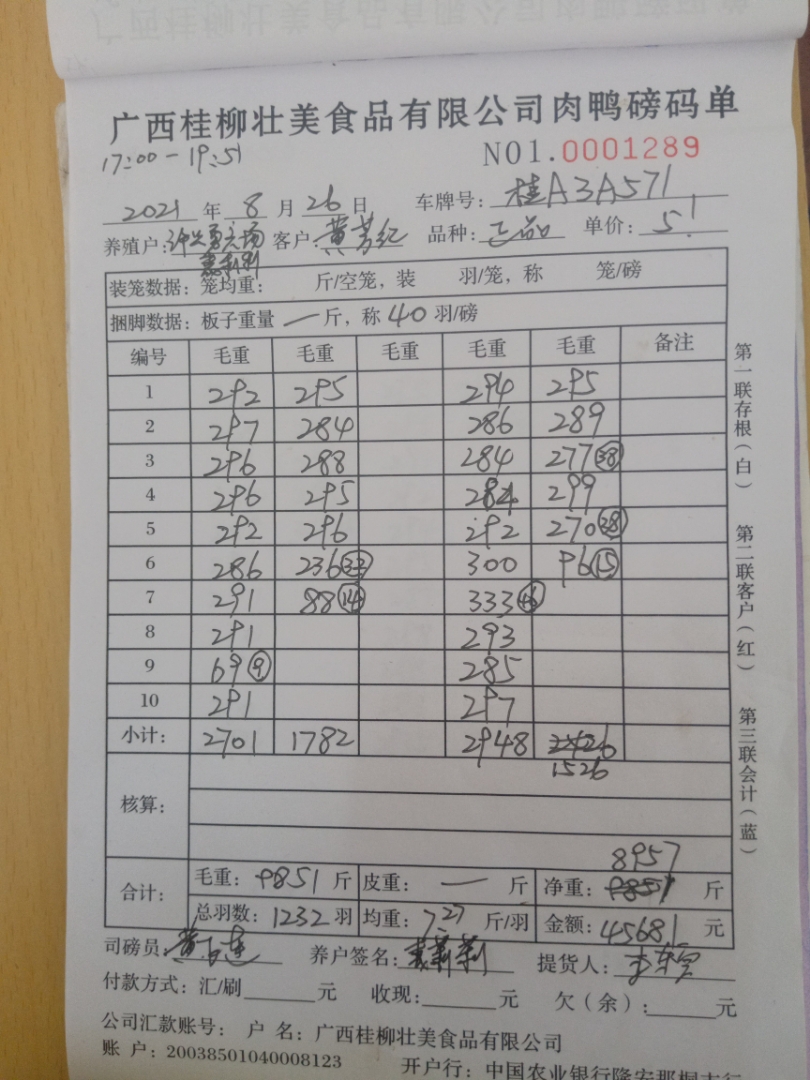 广西桂柳壮美食品有限公司肉鸭磅码单
17:00-19:51
NO1.0001289
2021年8月26日 车牌号:桂A3A571
养殖户: 客户:黄芳纪 品种:正品 单价:5.1
装笼数据:笼均重: 斤/空笼,装 羽/笼,称 笼/磅
捆脚数据:板子重量 一 斤,称 40 羽/磅
编号 毛重 毛重 毛重 毛重 毛重 备注
1 292 295 294 295
2 297 284 286 289
3 296 288 284 277 38
4 296 295 284 299
5 292 296 292 270 38
6 286 236 33 300 96 15
7 291 88 14 333 46
8 291 293
9 69 9 285
10 291 297
小计: 2701 1782 2948
1526
核算:
8957
合计: 毛重:9851斤 皮重:一斤 净重:9851斤
总羽数:1232羽 均重:7.27斤/羽 金额:45681元
司磅员: 养户签名: 提货人:
付款方式:汇/刷 元 收现: 元 欠(余): 元
公司汇款账号: 户 名:广西桂柳壮美食品有限公司
账 户:20038501040008123 开户行:中国农业银行隆安那桐支行
第一联存根(白) 第二联客户(红) 第三联会计(蓝)